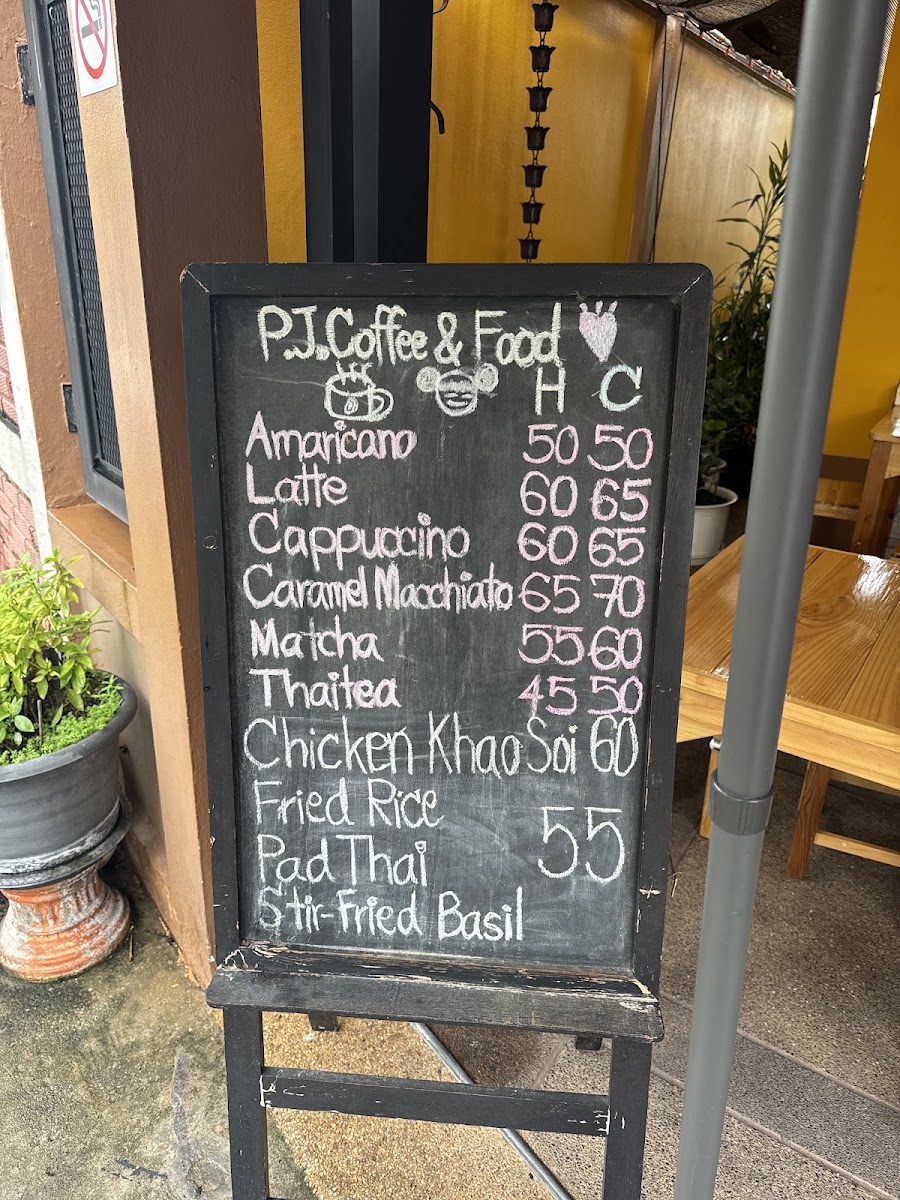 P.J. Coffee & Food
H C
Amaricano 50 50
Latte 60 65
Cappuccino 60 65
Caramel Macchiato 65 70
Matcha 55 60
Thaitea 45 50
Chicken Khao Soi 60
Fried Rice
Pad Thai 55
Stir-Fried Basil